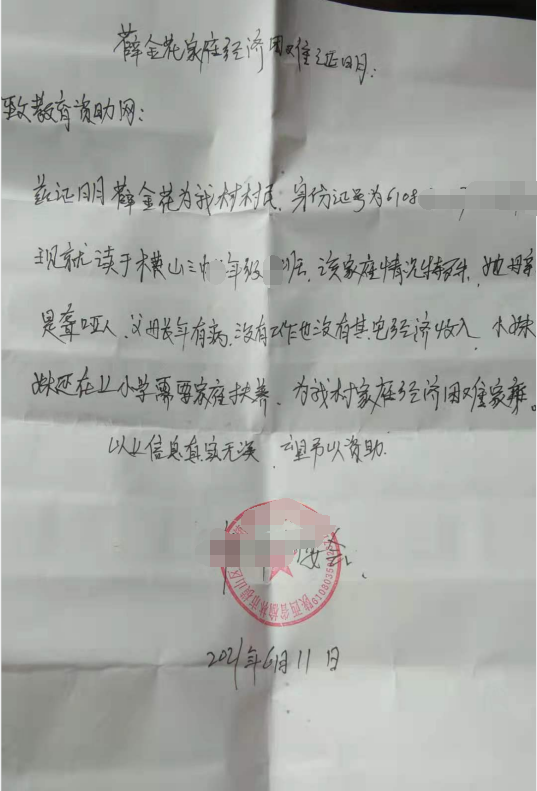 薛金花家庭经济困难证明:
致教育资助网:
兹证明薛金花为我村村民,身份证号为6108
现就读于横山三中 年级 班,该家庭情况特殊,她母亲
是聋哑人,父母长年有病,没有工作也没有其它经济收入,小妹
妹还在上小学需要家庭扶养,为我村家庭经济困难家庭。
以上信息真实无误,望予以资助.
委会.
陕西省榆林市横山区
2021年6月11日